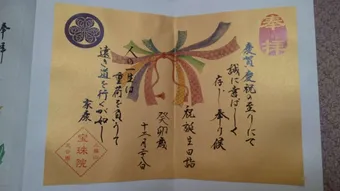 奉拝
慶賀慶祝の至りにて
誠に喜ばしく
存じ奉り候
祝誕生日詣
癸卯歳
十二月二十六日
人の一生は
重荷を負うて
遠き道を行くが如し
家康
宝珠院